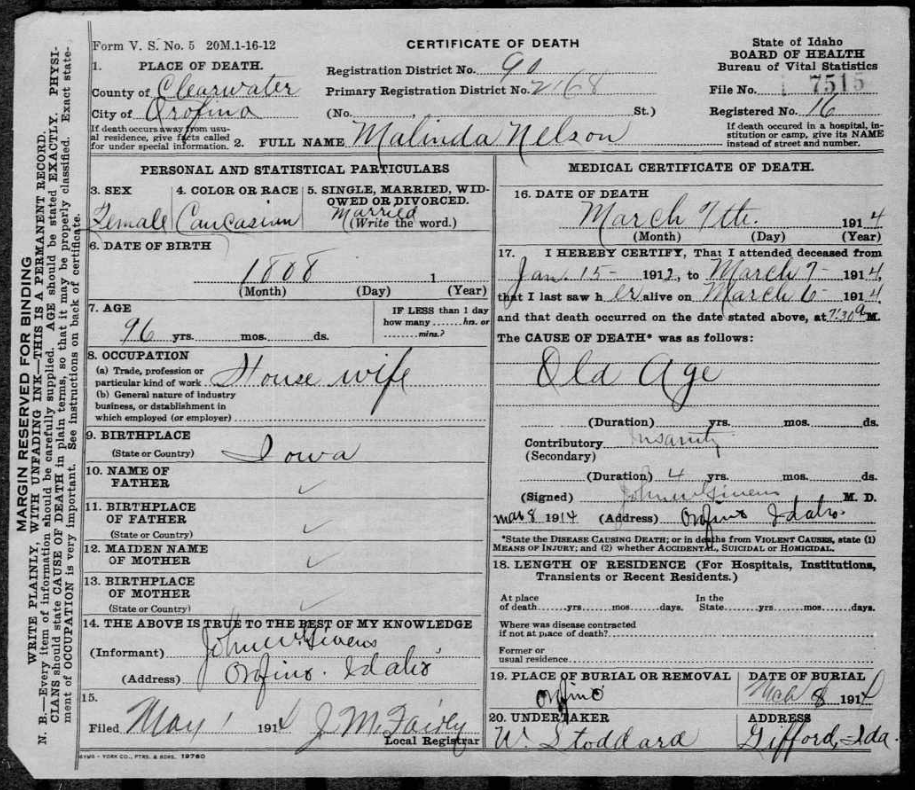 MARGIN RESERVED FOR BINDING
WRITE PLAINLY, WITH UNFADING INK—THIS IS A PERMANENT RECORD.
N. B.—Every item of information should be carefully supplied. AGE should be stated EXACTLY. PHYSI-
CIANS should state CAUSE OF DEATH in plain terms, so that it may be properly classified. Exact state-
ment of OCCUPATION is very important. See instructions on back of certificate.
Form V. S. No. 5 20M.1-16-12
CERTIFICATE OF DEATH
State of Idaho
BOARD OF HEALTH
Bureau of Vital Statistics
File No. 7515
Registered No. 16
If death occured in a hospital, in-
stitution or camp, give its NAME
instead of street and number.
1. PLACE OF DEATH.
County of Clearwater
City of Orofino
If death occurs away from usu-
al residence, give facts called
for under special information.
Registration District No. 90
Primary Registration District No. 2168
(No. St.)
2. FULL NAME Malinda Nelson
PERSONAL AND STATISTICAL PARTICULARS
3. SEX
Female
4. COLOR OR RACE
Caucasian
5. SINGLE, MARRIED, WID-
OWED OR DIVORCED.
Married
(Write the word.)
6. DATE OF BIRTH
1
(Month) (Day) (Year)
7. AGE
96 yrs. mos. ds.
IF LESS than 1 day
how many hn. or
mins.?
8. OCCUPATION
(a) Trade, profession or
particular kind of work House wife
(b) General nature of industry
business, or dstablishment in
which employed (or employer)
9. BIRTHPLACE
(State or Country) Iowa
10. NAME OF
FATHER ✓
11. BIRTHPLACE
OF FATHER ✓
(State or Country)
12. MAIDEN NAME
OF MOTHER ✓
13. BIRTHPLACE
OF MOTHER ✓
(State or Country)
14. THE ABOVE IS TRUE TO THE BEST OF MY KNOWLEDGE
(Informant) John W Givens,
(Address) Orofino. Idaho,
15.
Filed May 1 1914 J. M. Fairly
Local Registrar
SYMS - YORK CO., PTRS. & BDRS. 19780
MEDICAL CERTIFICATE OF DEATH.
16. DATE OF DEATH
March 7th. 1914
(Month) (Day) (Year)
17. I HEREBY CERTIFY, That I attended deceased from
Jan. 15- 1912, to March 7- 1914,
that I last saw h er alive on March 6- 1914.
and that death occurred on the date stated above, at 7:30 a M.
The CAUSE OF DEATH* was as follows:
Old Age
(Duration) yrs. mos. ds.
Contributory Insanity
(Secondary)
(Duration) 4 yrs. mos. ds.
(Signed) John W Givens M. D.
Mar 8 1914 (Address) Orofino Idaho.
*State the DISEASE CAUSING DEATH; or in deaths from VIOLENT CAUSES, state (1)
MEANS OF INJURY; and (2) whether ACCIDENTAL, SUICIDAL or HOMICIDAL.
18. LENGTH OF RESIDENCE (For Hospitals, Institutions,
Transients or Recent Residents.)
At place
of death yrs mos days.
In the
State yrs mos days.
Where was disease contracted
if not at place of death?
Former or
usual residence
19. PLACE OF BURIAL OR REMOVAL
Orofino
DATE OF BURIAL
Mar 8 1914
20. UNDERTAKER
W. Stoddard
ADDRESS
Gifford, Ida.